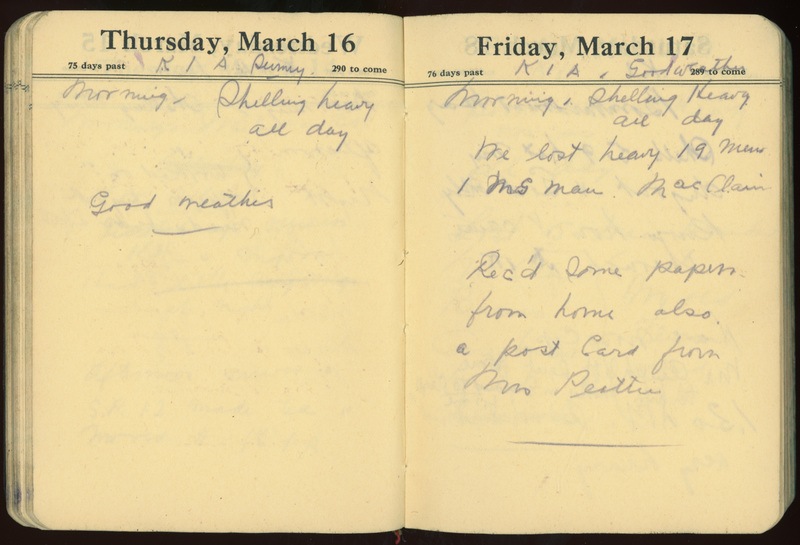 Thursday, March 16
75 days past
290 to come
K I A
Morning. Shelling heavy
all day
Good weather
Friday, March 17
76 days past
289 to come
K I A. Good weather
Morning. Shelling Heavy
all day
We lost heavy 19 men
1 MG man. MacClain
Rec'd some papers
from home also
a post Card from
Mrs